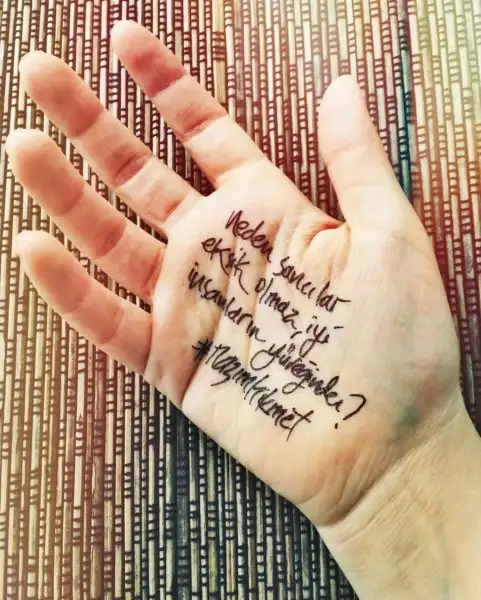 Neden sancılar
eksik olmaz, iyi
insanların yüreğinden?
#nazımhikmet